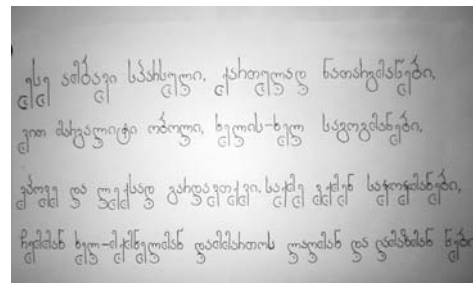 ესე ამბავი სპარსული, ქართულად ნათარგმანები,
ვით მარგალიტი ობოლი, ხელის-ხელ საგოგმანები,
ვპოვე და ლექსად გარდავთქვი, საქმე ვქმენ საჭოჭმანები,
ჩემმან ხელ-მქმნელმან დამმართოს ლაღმან და ლამაზმან ნები